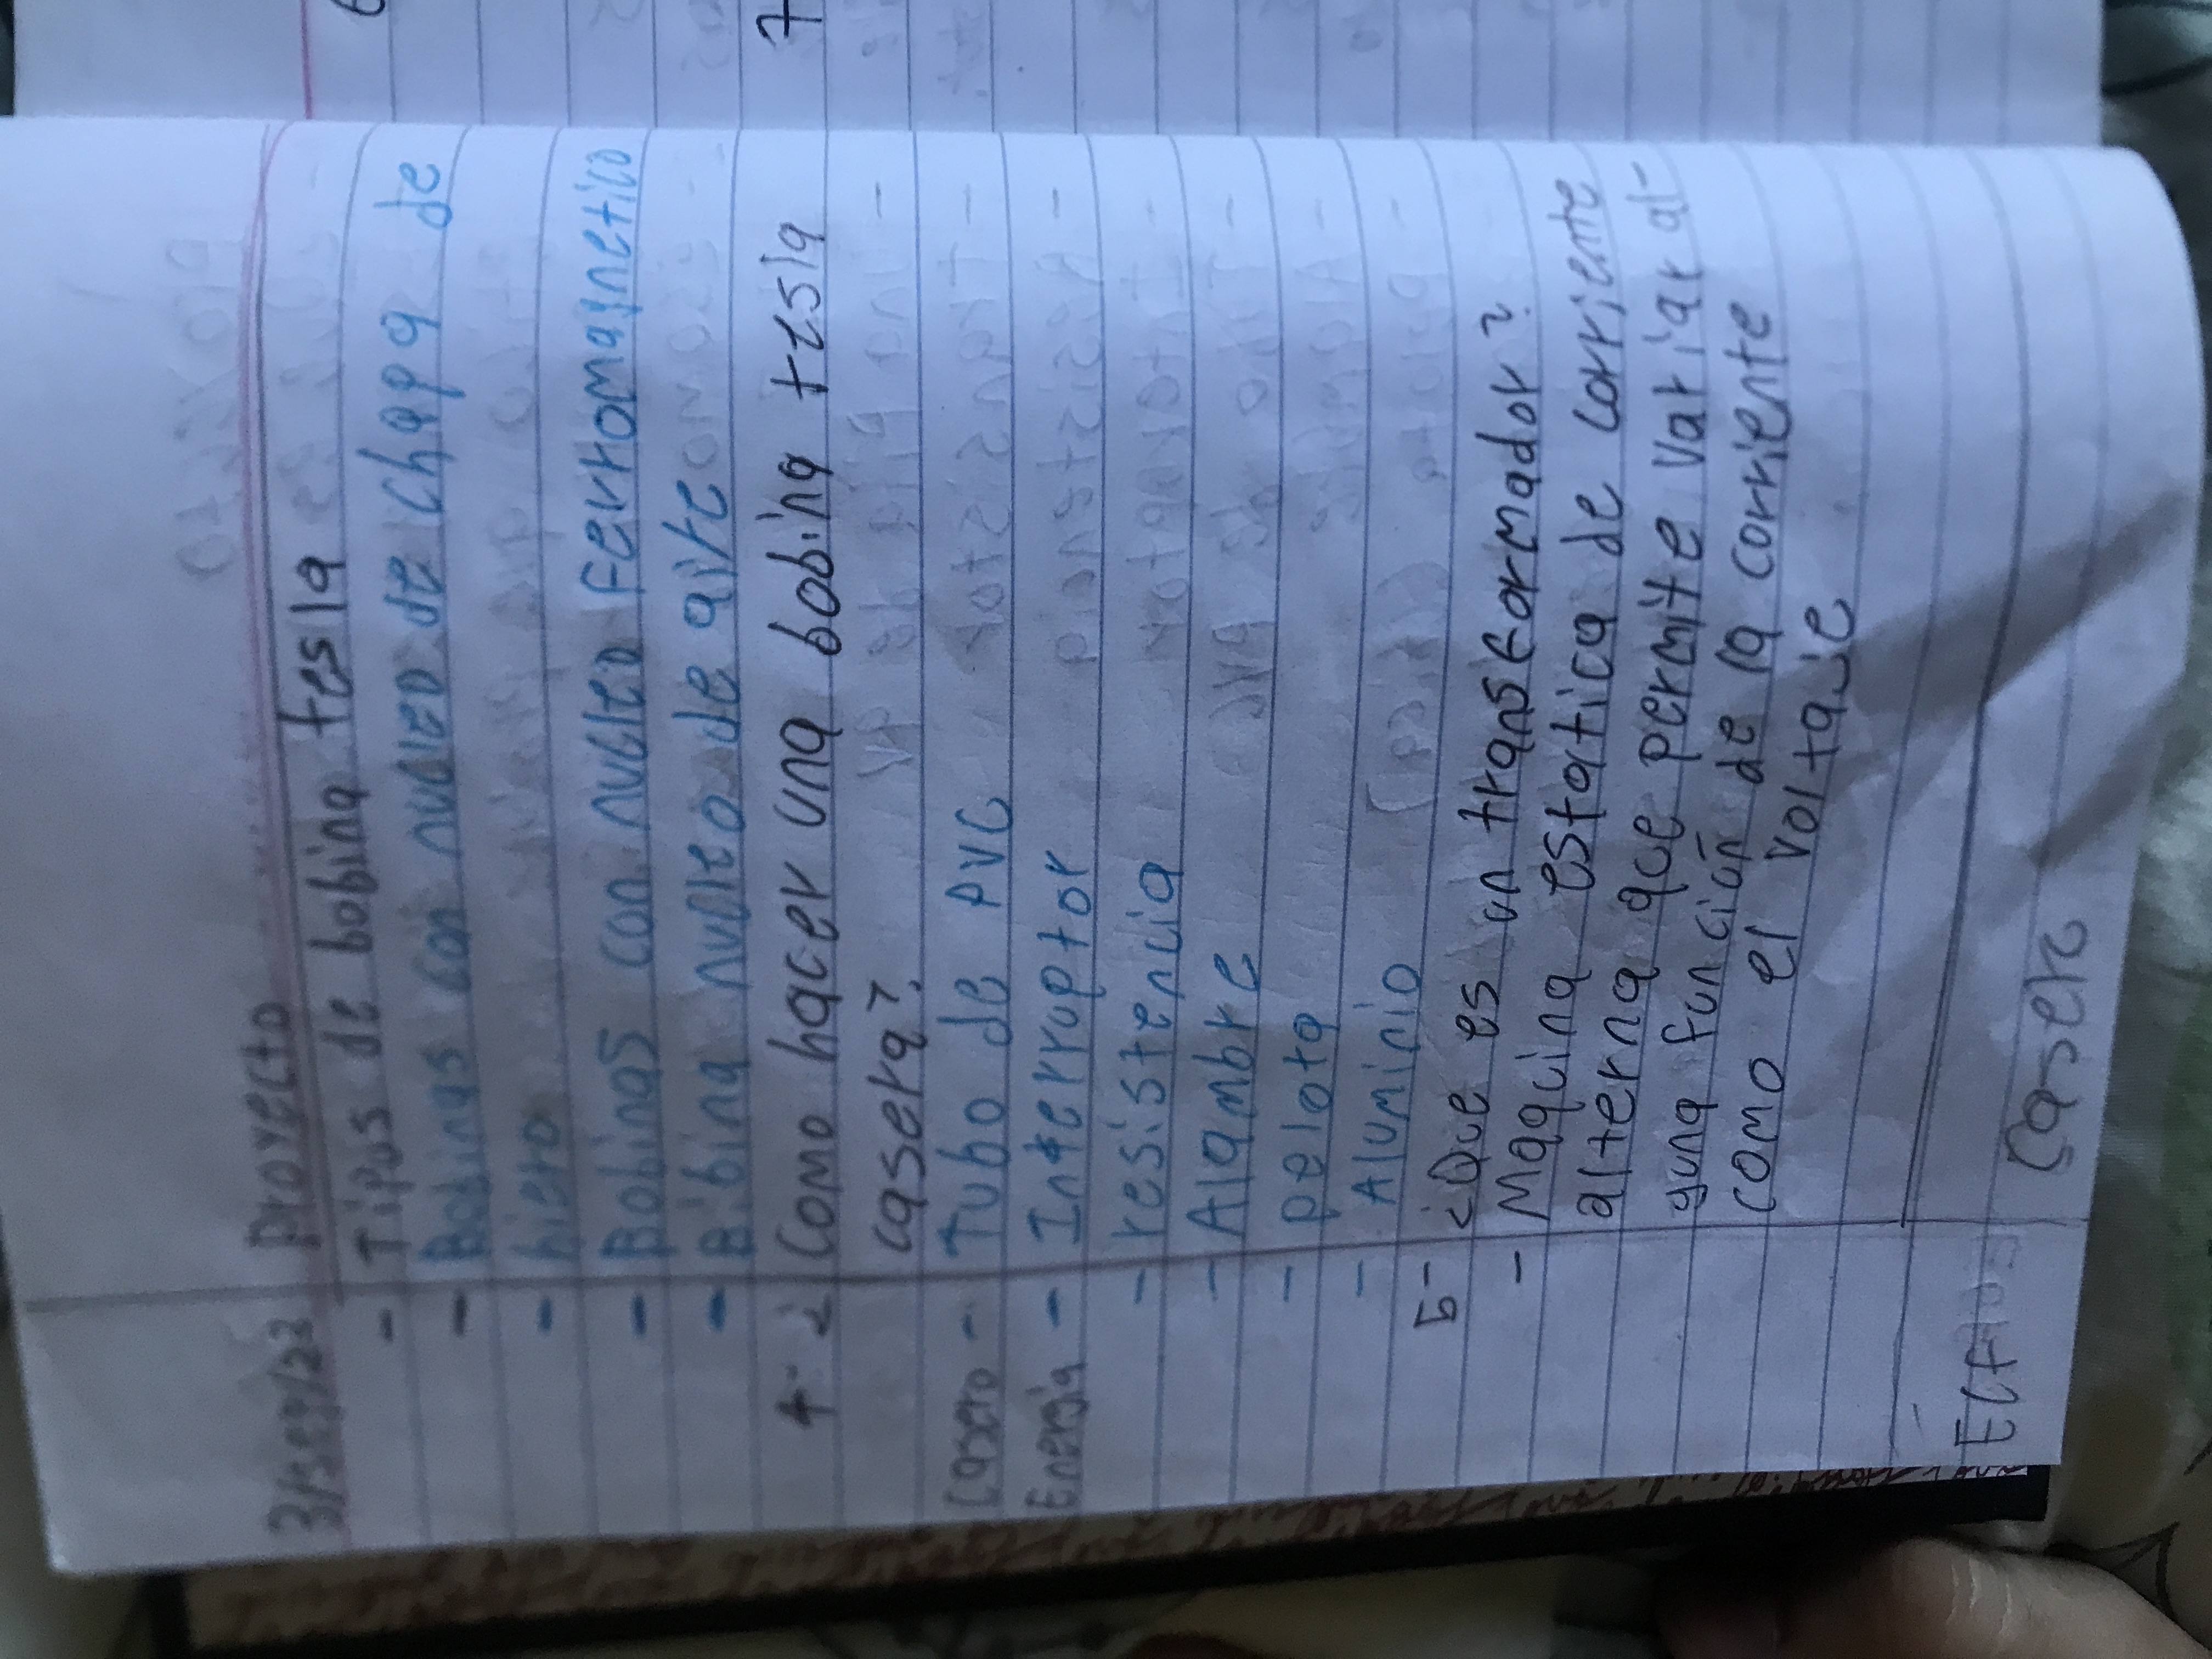 Proyecto
- Tipos de bobina tesla
- Bobinas con nucleo de chapa de
- hiero
- Bobinas con nucleo Ferromagnetico
- Bibina nucleo de aire
4- ¿Como hacer una bobina tesla
casera?
Casero - Tubo de PVC
Energia - Interruptor
- resistencia
- Alambre
- pelota
- Aluminio
5- ¿Que es un transformador?
- Maqcina estatica de corriente
alterna que permite variar al-
guna función de la corriente
como el voltaje
Casero
7